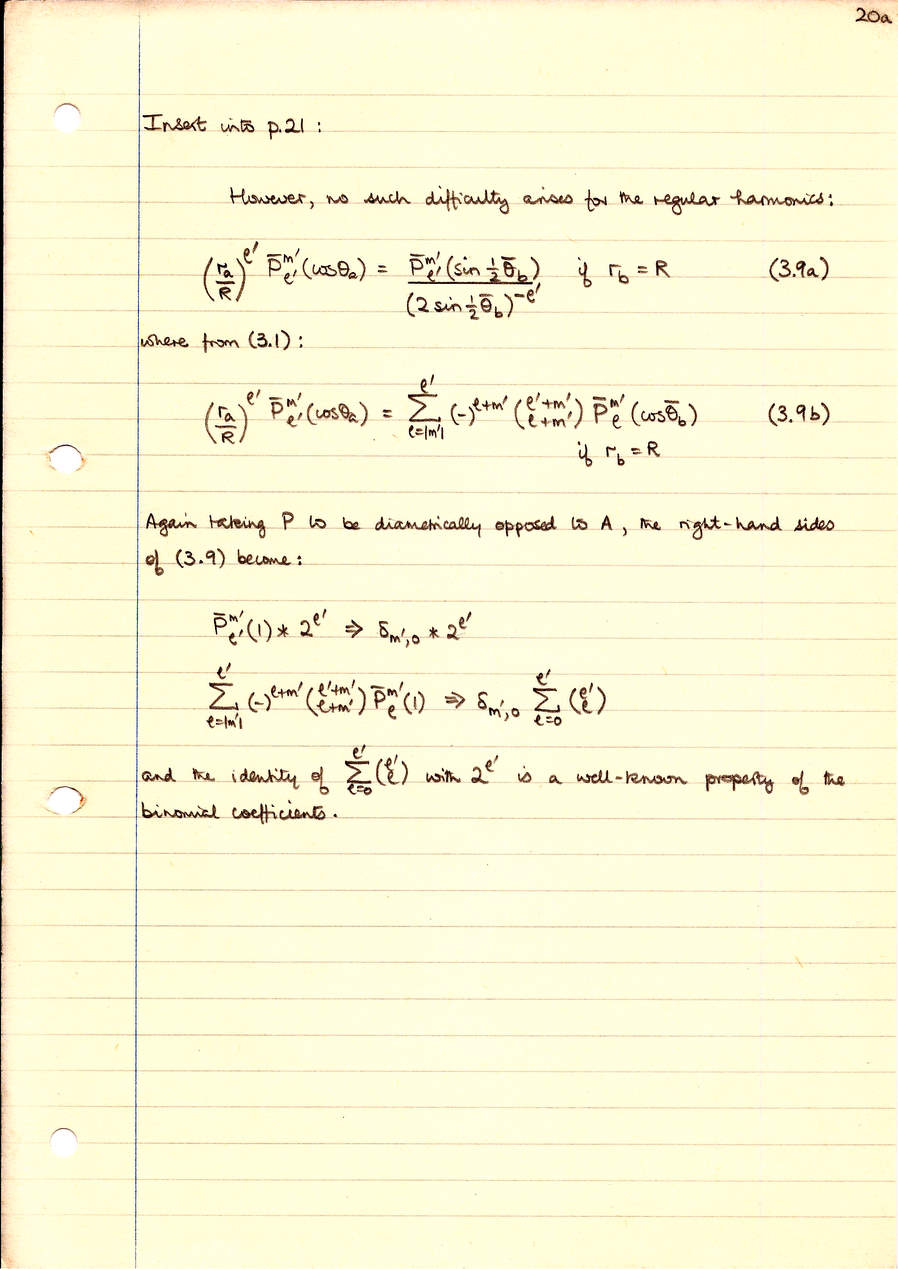 20a
Insert into p.21 :
However, no such difficulty arises for the regular harmonics:
(r_a/R)^ℓ' P̄_ℓ'^m'(cosθ_a) = P̄_ℓ'^m'(sin ½θ̄_b) / (2 sin ½θ̄_b)^-ℓ' if r_b = R (3.9a)
where from (3.1) :
(r_a/R)^ℓ' P̄_ℓ'^m'(cosθ_a) = Σ_{ℓ=|m'|}^{ℓ'} (-)^{ℓ+m'} (ℓ'+m' ℓ+m') P̄_ℓ^m'(cosθ̄_b) (3.9b)
if r_b = R
Again taking P to be diametrically opposed to A, the right-hand sides
of (3.9) become :
P̄_ℓ'^m'(1) * 2^ℓ' ⇒ δ_{m',0} * 2^ℓ'
Σ_{ℓ=|m'|}^{ℓ'} (-)^{ℓ+m'} (ℓ'+m' ℓ+m') P̄_ℓ^m'(1) ⇒ δ_{m',0} Σ_{ℓ=0}^{ℓ'} (ℓ' ℓ)
and the identity of Σ_{ℓ=0}^{ℓ'} (ℓ' ℓ) with 2^ℓ' is a well-known property of the
binomial coefficients.